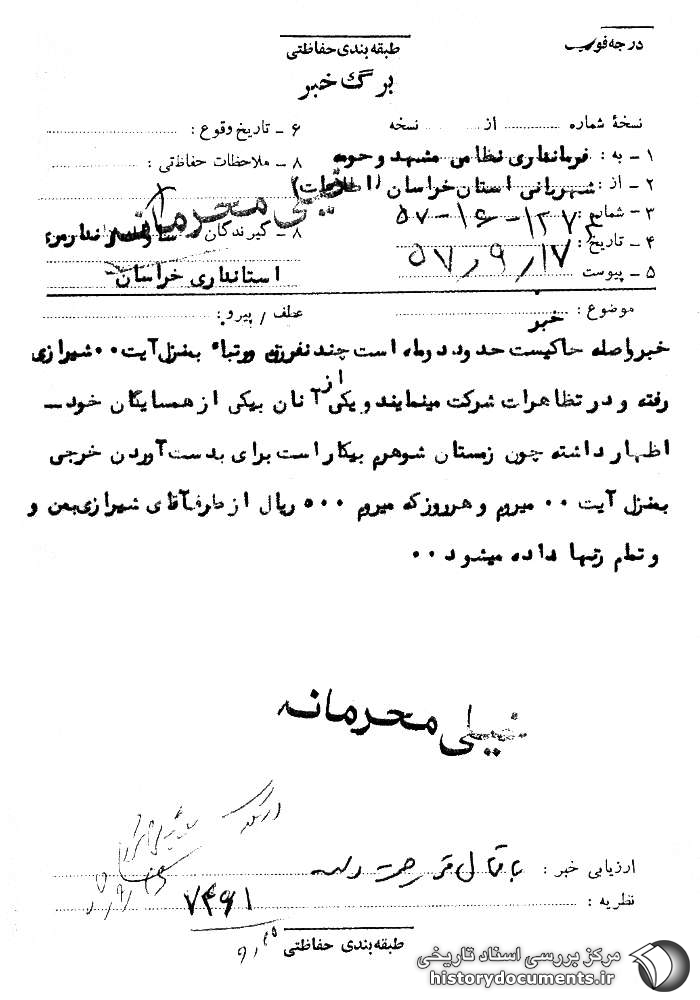 درجه فوریت
طبقه بندی حفاظتی
برگ خبر
نسخهٔ شماره ........ از ........ نسخه
۱ - به : فرمانداری نظامی مشهد و حومه
۲ - از : شهربانی استان خراسان (اطلاعات)
۳ - شماره : ۱۲۷۴-۱۶-۵۷
۴ - تاریخ : ۵۷٫۹٫۱۷
۵ - پیوست
۶ - تاریخ وقوع :
۸ - ملاحظات حفاظتی :
خیلی محرمانه
۸ - گیرندگان
استانداری خراسان
موضوع : خبر
عطف / پیرو :
خبر واصله حاکیست حدود دوماه است چند نفرزن مرتبا" بمنزل آیت ۰۰ شیرازی
رفته و در تظاهرات شرکت مینمایند و یکی از آنان بیکی از همسایگان خود ـ
اظهار داشته چون زمستان شوهرم بیکار است برای بدست آوردن خرجی
بمنزل آیت ۰۰ میروم و هرروز که میروم ۵۰۰ ریال از طرف آقای شیرازی بمن و
و تمام زنها داده میشود ۰۰
خیلی محرمانه
ارزیابی خبر :
نظریه :
۷۴۶۱
طبقه بندی حفاظتی
مرکز بررسی اسناد تاریخی
historydocuments.ir